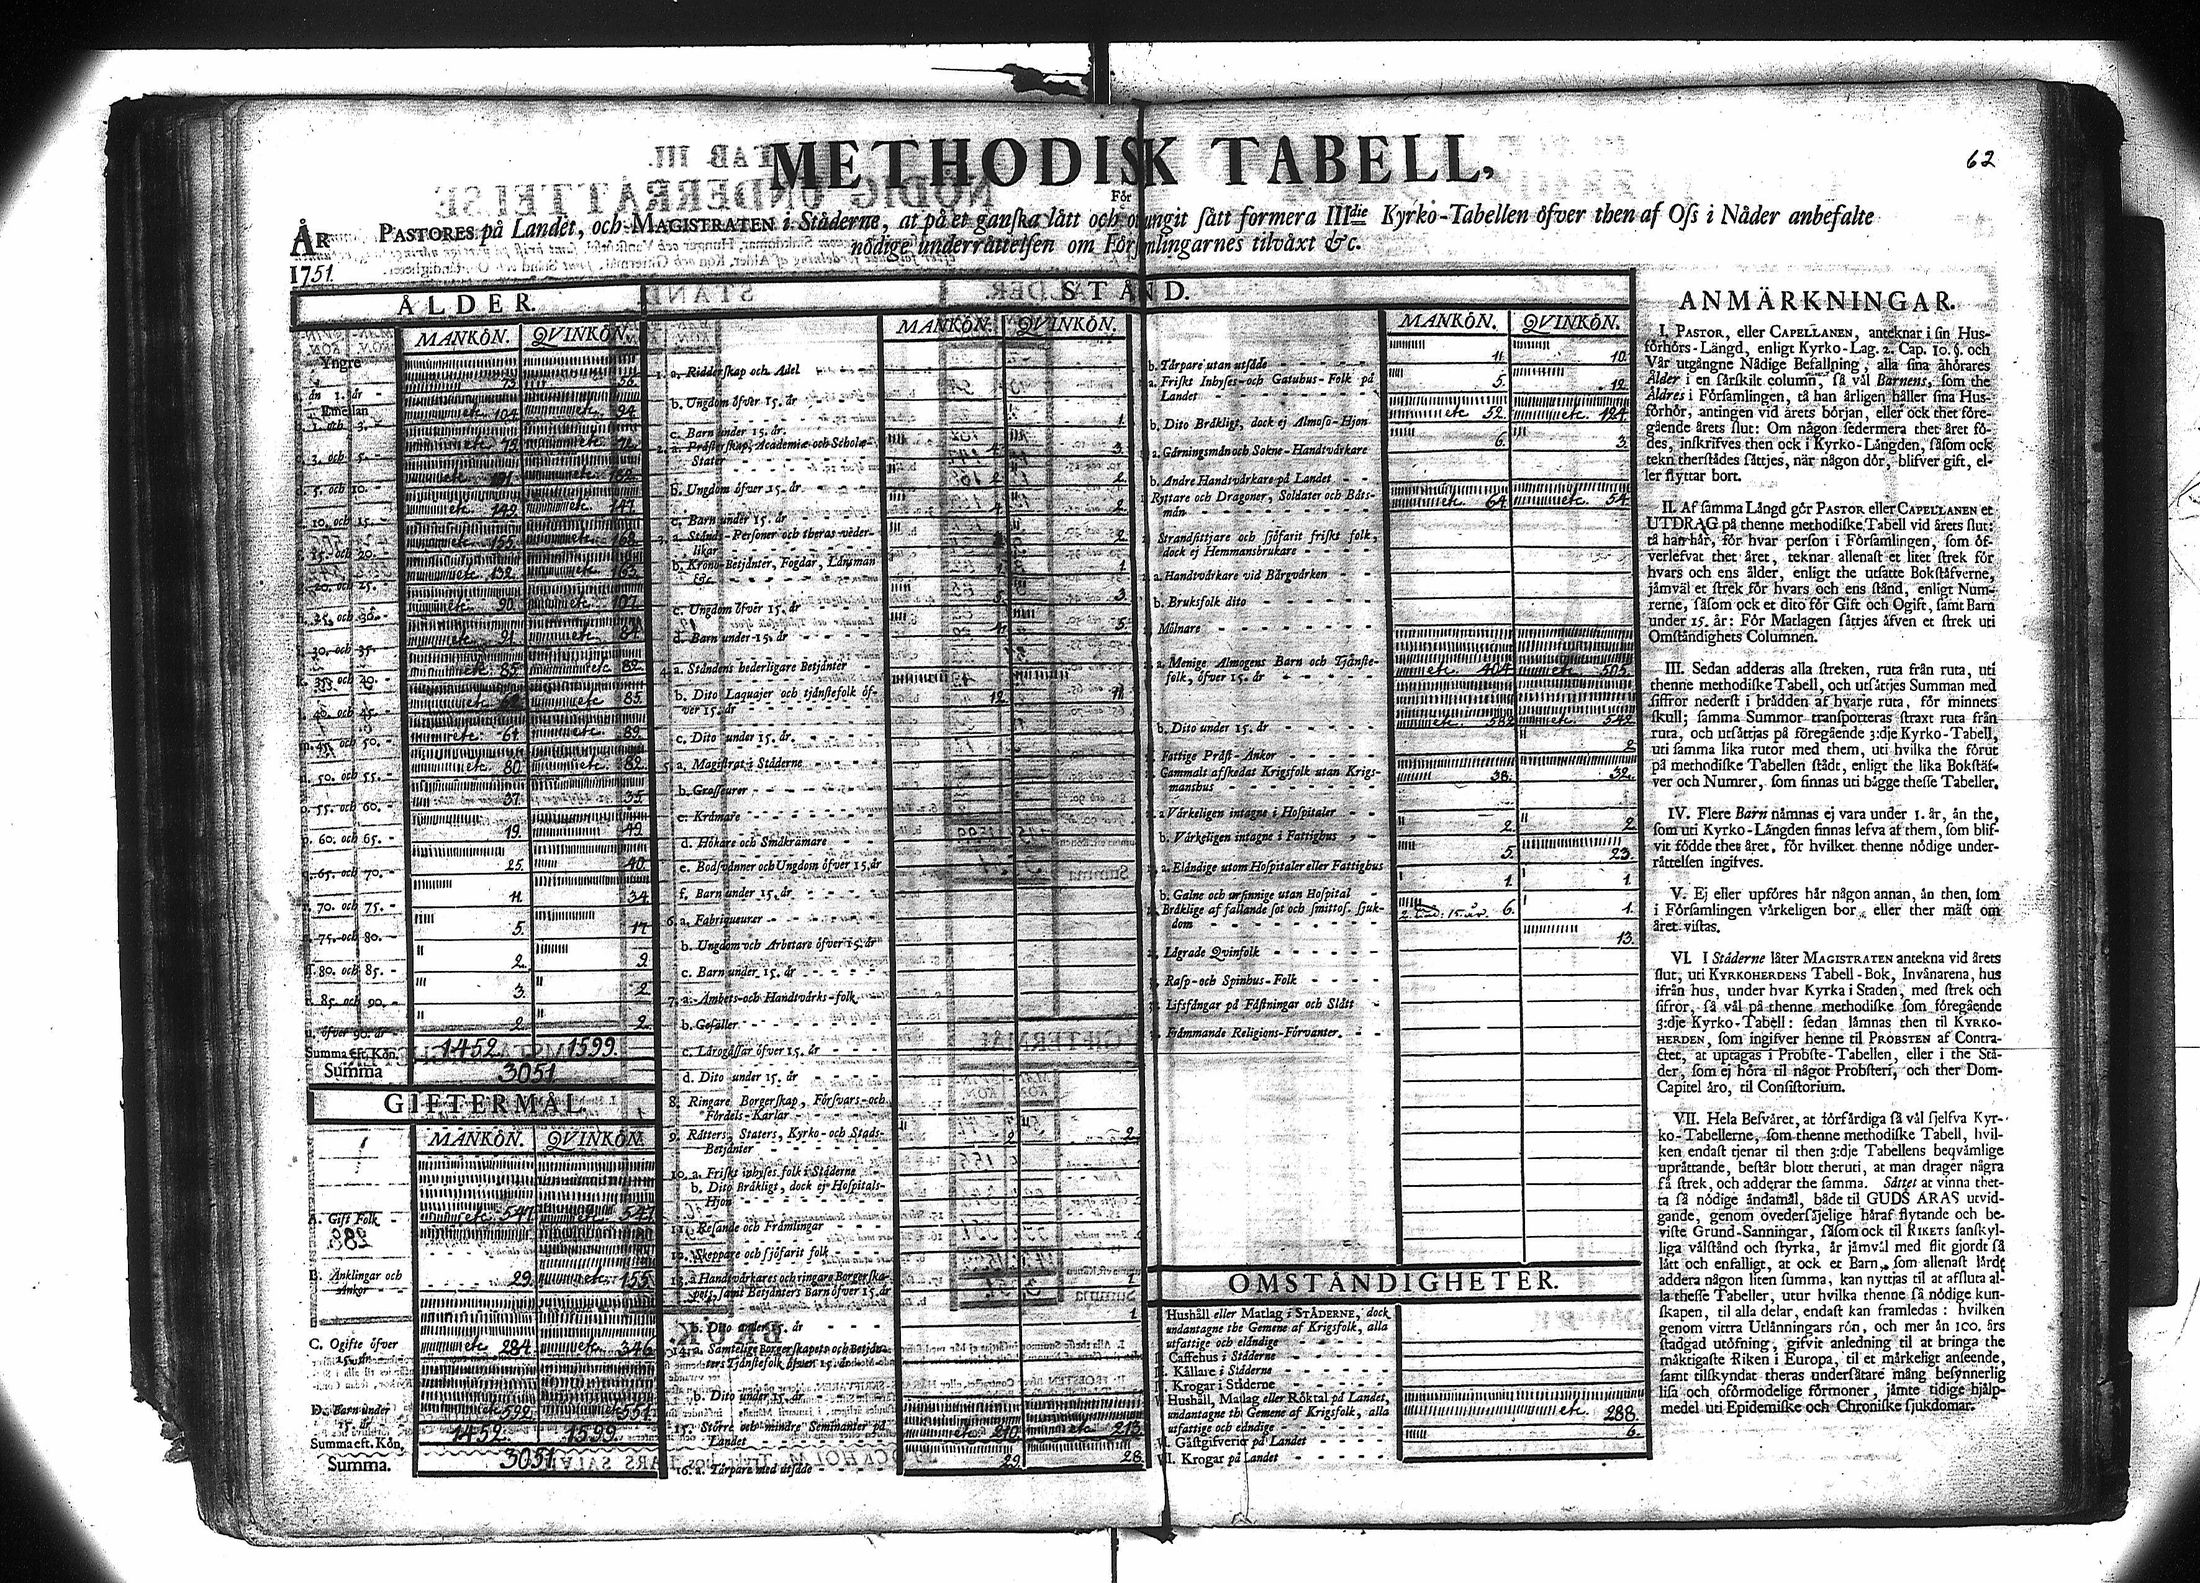 62
METHODISK TABELL,
För
PASTORES på Landet, och MAGISTRATEN i Städerne, at på et ganska lätt och otvungit sätt formera IIIdie Kyrko-Tabellen öfver then af Oss i Nåder anbefalte
nödige underrättelsen om Församlingarnes tilväxt &c.
ÅR
1751.
ÅLDER.
MANKÖN. QVINKÖN.
Yngre
än 1. år - 73. 56.
Emellan
b. 1. och 3. - etc. 104. etc. 94.
c. 3. och 5. - etc. 75. etc. 72.
d. 5. och 10. - etc. etc. 182.
e. 10. och 15. - etc. 149. etc. 147.
f. 15. och 20. - etc. 155. etc. 168.
g. 20. och 25. - etc. 132. etc. 163.
h. 25. och 30. - etc. 90. etc. 107.
i. 30. och 35. - etc. 91. etc. 84.
k. 35. och 40. - etc. 85. etc. 82.
l. 40. och 45. - etc. etc. 85.
m. 45. och 50. - etc. 61. etc. 89.
n. 50. och 55. - etc. 80. etc. 82.
o. 55. och 60. - 37. 35.
p. 60. och 65. - 19. 49.
q. 65. och 70. - 25. 40.
r. 70. och 75. - 11. 34.
s. 75. och 80. - 5. 17.
t. 80. och 85. - 2. 9.
85. och 90. - 3. 2.
u. öfver 90. år - 2. 2.
Summa eft. Kön. 1452. 1599.
Summa 3051.
GIFTERMÅL.
MANKÖN. QVINKÖN.
A. Gift Folk - etc. 547. etc. 547.
B. Änklingar och
Änkor - 29. etc. 155.
C. Ogifte öfver
15. år etc. 284. etc. 346.
D. Barn under
15. år etc. 592. etc. 551.
Summa eft. Kön. 1452. 1599.
Summa. 3051.
STÅND.
MANKÖN. QVINKÖN.
1. a. Ridderskap och Adel
b. Ungdom öfver 15. år 1.
c. Barn under 15. år.
2. a. Prästerskap, Academiæ och Scholæ-
Stater - 4. 3.
b. Ungdom öfver 15. år 2. 2.
c. Barn under 15. år 4. 2.
3. a. Stånds-Personer och theras veder-
likar 2.
b. Krono-Betjänter, Fogdar, Länsman
&c. 1.
c. Ungdom öfver 15. år 5. 3.
d. Barn under 15. år 4. 5.
4. a. Ståndens hederligare Betjänter
b. Dito Laquajer och tjänstefolk öf-
ver 15. år 12. 11.
c. Dito under 15. år.
5. a. Magistrat i Städerne
b. Grosseurer
c. Krämare
d. Hökare och Småkrämare
e. Bodsvänner och Ungdom öfver 15. år
f. Barn under 15. år
6. a. Fabriqueurer
b. Ungdom och Arbetare öfver 15. år
c. Barn under 15. år
7. a. Ämbets-och Handtvärks-folk
b. Gesäller
c. Lärogåssar öfver 15. år
d. Dito under 15. år
8. Ringare Borgerskap, Försvars-och
Fördels-Karlar
9. Rätters, Staters, Kyrko-och Stads-
Betjänter 2. 2.
10. a. Friskt inhyses folk i Städerne
b. Dito Bräkligt, dock ej Hospitals-
Hjon
11. Resande och Främlingar
12. Skeppare och sjöfarit folk
13. a Handtvärkares och ringare Borgerska-
pets, samt Betjänters Barn öfver 15. år 1.
b. Dito under 15. år 1.
14. a. Samtelige Borgerskapets och Betjän-
ters Tjänstefolk öfver 15. år
b. Dito under 15. år
15. Större och mindre Seminanter på
Landet etc. 210. etc. 213.
16. a. Torpare med utsäde 29. 28.
MANKÖN. QVINKÖN.
b. Torpare utan utsäde 11. 10.
a. Friskt Inhyses-och Gatuhus-Folk på
Landet 5. 12.
b. Dito Bräkligt, dock ej Almoso-Hjon etc. 52. etc. 124.
a. Gärningsmän och Sokne-Handtvärkare 6. 3.
b. Andre Handtvärkare på Landet
Ryttare och Dragoner, Soldater och Båts-
män etc. 64. etc. 54.
Strandsittjare och sjöfarit friskt folk,
dock ej Hemmansbrukare
a. Handtvärkare vid Bärgvärken
b. Bruksfolk dito
Mölnare
a. Menige Almogens Barn och Tjänste-
folk, öfver 15. år etc. 404. etc. 505.
b. Dito under 15. år etc. 582. etc. 542.
Fattige Präst-Änkor 2.
Gammalt afskedat Krigsfolk utan Krigs-
manshus 38. 32.
a Värkeligen intagne i Hospitaler
b. Värkeligen intagne i Fattighus 2. 2.
a. Eländige utom Hospitaler eller Fattighus 5. 23.
b. Galne och ursinnige utan Hospital 1. 1.
Bräklige af fallande sot och smittos. sjuk-
dom 6. 1.
Lägrade Qvinfolk 13.
Rasp-och Spinhus-Folk
Lifsfångar på Fästningar och Slått
Främmande Religions-Förvanter.
OMSTÄNDIGHETER.
Hushåll eller Matlag i STÄDERNE, dock
undantagne the Gemene af Krigsfolk, alla
utfattige och eländige
Caffehus i Städerne
Källare i Städerne
Krogar i Städerne
Hushåll, Matlag eller Röktal på Landet,
undantagne the Gemene af Krigsfolk, alla
utfattige och eländige etc. 288.
Gästgifverier på Landet 6.
Krogar på Landet
ANMÄRKNINGAR.
I. PASTOR, eller CAPELLANEN, anteknar i sin Hus-
förhörs-Längd, enligt Kyrko-Lag. 2. Cap. 10. §. och
Vår utgångne Nådige Befallning, alla sina åhörares
Ålder i en särskilt column, så väl Barnens, som the
Äldres i Församlingen, tå han årligen håller sina Hus-
förhör, antingen vid årets början, eller ock thet före-
gående årets slut: Om någon sedermera thet året fö-
des, inskrifves then ock i Kyrko-Längden, såsom ock
tekn therstädes sättjes, när någon dör, blifver gift, el-
ler flyttar bort.
II. Af samma Längd gör PASTOR eller CAPELLANEN et
UTDRAG på thenne methodiske Tabell vid årets slut:
tå han här, för hvar person i Församlingen, som öf-
verlefvat thet året, teknar allenast et litet strek för
hvars och ens ålder, enligt the utsatte Bokstäfverne,
jämväl et strek för hvars och ens stånd, enligt Num-
rerne, såsom ock et dito för Gift och Ogift, samt Barn
under 15. år: För Matlagen sättjes äfven et strek uti
Omständighets Columnen.
III. Sedan adderas alla streken, ruta från ruta, uti
thenne methodiske Tabell, och utsättjes Summan med
siffror nederst i brädden af hvarje ruta, för minnets
skull; samma Summor transporteras straxt ruta från
ruta, och utsättjas på föregående 3:dje Kyrko-Tabell,
uti samma lika rutor med them, uti hvilka the förut
på methodiske Tabellen städt, enligt the lika Bokstäf-
ver och Numrer, som finnas uti bägge thesse Tabeller.
IV. Flere Barn nämnas ej vara under 1. år, än the,
som uti Kyrko-Längden finnas lefva af them, som blif-
vit födde thet året, för hvilket thenne nödige under-
rättelsen ingifves.
V. Ej eller upföres här någon annan, än then, som
i Församlingen värkeligen bor, eller ther mäst om
året vistas.
VI. I Städerne låter MAGISTRATEN antekna vid årets
slut, uti KYRKOHERDENS Tabell-Bok, Invånarena, hus
ifrån hus, under hvar Kyrka i Staden, med strek och
sifror, så väl på thenne methodiske som föregående
3:dje Kyrko-Tabell: sedan lämnas then til KYRKO-
HERDEN, som ingifver henne til PROBSTEN af Contra-
ctet, at uptagas i Probste-Tabellen, eller i the Stä-
der, som ej höra til något Probsteri, och ther Dom-
Capitel äro, til Consistorium.
VII. Hela Besväret, at förfärdiga så väl sjelfva Kyr-
ko-Tabellerne, som thenne methodiske Tabell, hvil-
ken endast tjenar til then 3:dje Tabellens beqvämlige
uprättande, består blott theruti, at man drager några
få strek, och adderar the samma. Sättet at vinna thet-
ta så nödige ändamål, både til GUDS ÄRAS utvid-
gande, genom ovedersäjelige häraf flytande och be-
viste Grund-Sanningar, såsom ock til RIKETS sanskyl-
liga välstånd och styrka, är jämväl med flit gjordt så
lätt och enfalligt, at ock et Barn, som allenast lärde
addera någon liten summa, kan nyttjas til at affluta al-
la thesse Tabeller, utur hvilka thenne så nödige kun-
skapen, til alla delar, endast kan framledas: hvilken
genom vittra Utlänningars rön, och mer än 100. års
stadgad utöfning, gifvit anledning til at bringa the
mäktigaste Riken i Europa, til et märkeligt anseende,
samt tilskyndat theras undersåtare mång besynnerlig
lisa och oförmodelige förmoner, jämte tidige hjälp-
medel uti Epidemiske och Chroniske sjukdomar.